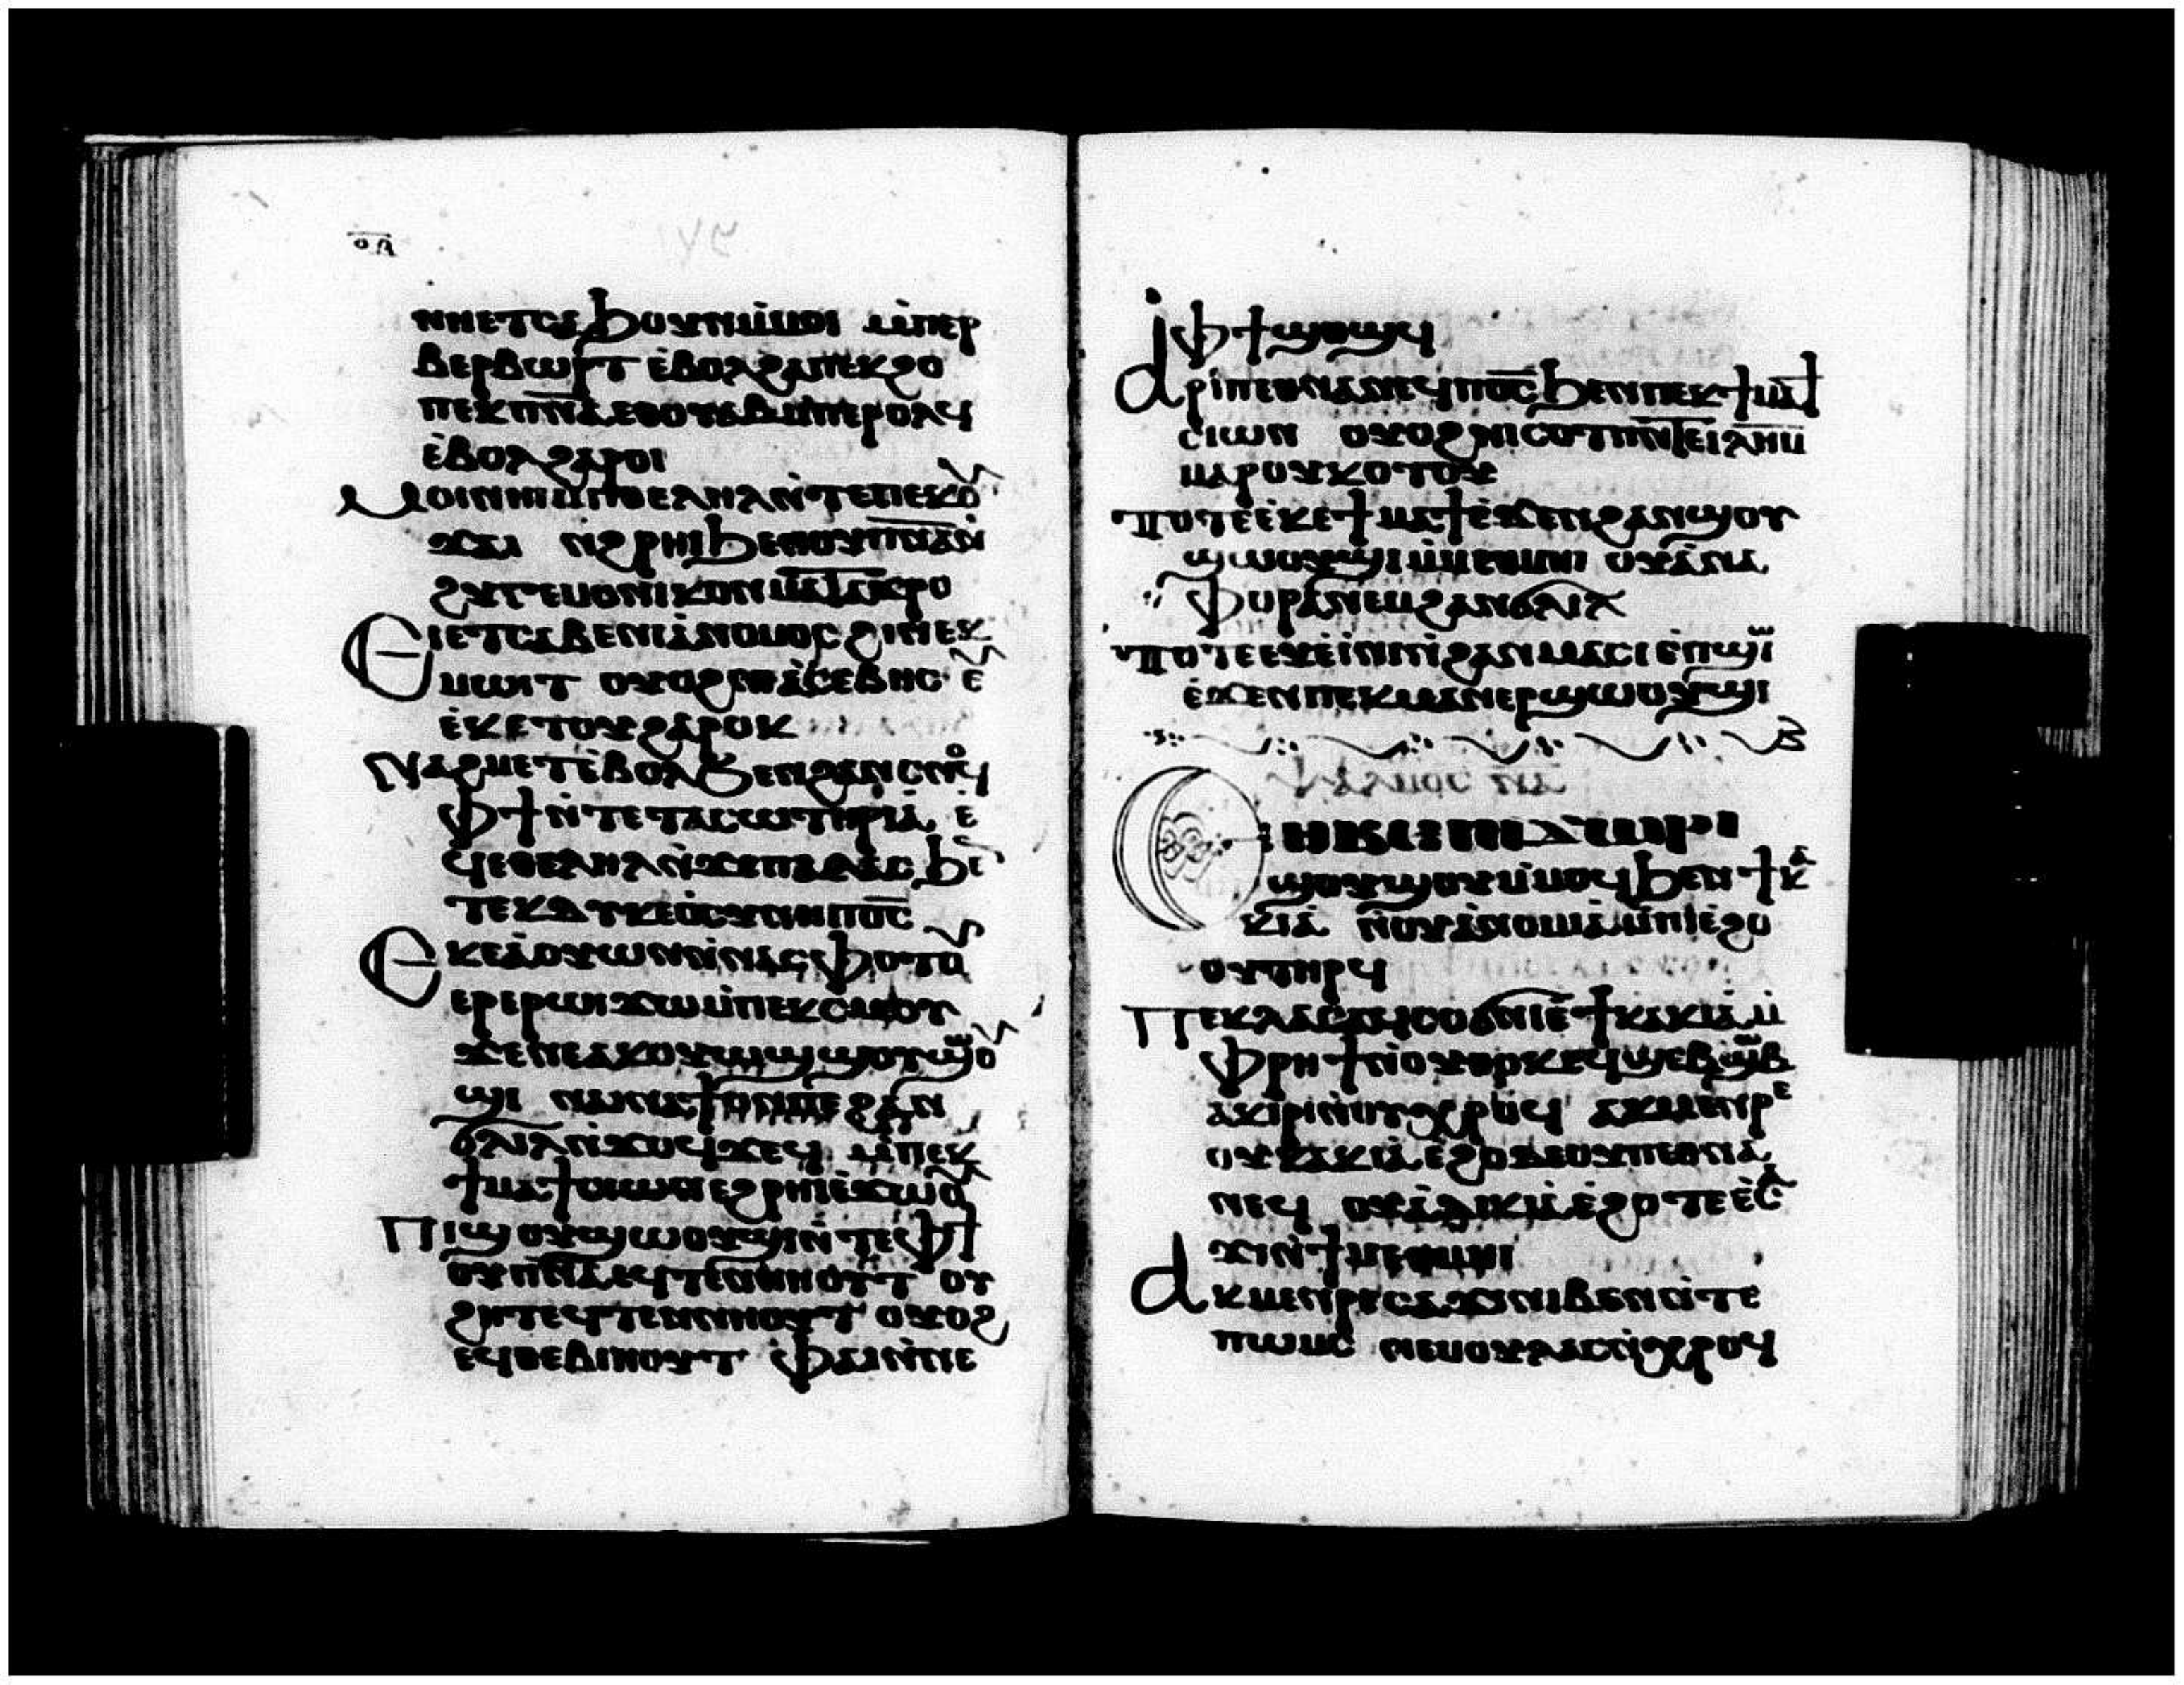 ⲟⲁ
ⲛⲏⲉⲧⲥⲁϧⲟⲩⲛⲙ̇ⲙⲟⲓ ⲙ̇ⲡⲉⲣ
ⲃⲉⲣⲃⲱⲣⲧ ⲉ̇ⲃⲟⲗϩⲁⲡⲉⲕϩⲟ
ⲡⲉⲕⲡⲛ̅ⲁ̅ⲉⲑⲟⲩⲁⲃⲙ̇ⲡⲉⲣⲟⲗϥ
ⲉ̇ⲃⲟⲗϩⲁⲣⲟⲓ
Ⲙⲟⲓⲛⲏⲓⲙ̇ⲡⲑⲉⲗⲏⲗⲛ̇ⲧⲉⲡⲉⲕⲟⲩ
ϫⲁⲓ ⲛ̇ϩⲣⲏⲓϧⲉⲛⲟⲩⲡⲛ̅ⲁ̅ⲛ̇
ϩⲩⲅⲉⲙⲟⲛⲓⲕⲟⲛⲙⲁⲧⲁϫⲣⲟ
Ⲉⲓⲉⲧⲥⲁⲃⲉⲛⲓⲁ̇ⲛⲟⲙⲟⲥ ϩⲓⲛⲉⲕ
ⲙⲱⲓⲧ ⲟⲩⲟϩⲛⲓⲁ̇ⲥⲉⲃⲏⲥ ⲉⲩ
ⲉ̇ⲕⲉⲧⲟⲩϩⲁⲣⲟⲕ
Ⲛⲁϩⲙⲉⲧⲉ̇ⲃⲟⲗϧⲉⲛϩⲁⲛⲥⲛⲟϥ
Ⲫϯⲛ̇ⲧⲉⲧⲁⲥⲱⲧⲏⲣⲓⲁ̇ ⲉ̇
ϥⲉⲑⲉⲗⲏⲗⲛ̇ϫⲉⲡⲁⲗⲁⲥ ϧⲉⲛ
ⲧⲉⲕⲇⲓⲕⲉⲟ̇ⲥⲩⲛⲏⲡⲟ̅ⲥ̅
Ⲉⲕⲉⲁ̇ⲟⲩⲱⲛⲛ̇ⲛⲁⲥⲫⲟⲧⲟⲩ
ⲉⲣⲉⲣⲱⲓϫⲱⲙ̇ⲡⲉⲕⲥⲙⲟⲩ
ϫⲉⲉⲛⲉⲁⲕⲟⲩⲱϣϣⲟⲩϣⲱⲟⲩ
ϣⲓ ⲛⲁⲓⲛⲁϯⲟⲛⲡⲉ ϩⲁⲛ
ϭⲗⲓⲗⲛ̇ⲛⲟⲩϥϫⲉϥ ⲙ̇ⲡⲉⲕ
ϯⲙⲁϯⲉ̇ϩⲣⲏⲓⲉ̇ϫⲱⲟⲩ
Ⲡⲓϣⲟⲩϣⲱⲟⲩϣⲓⲛ̇ⲧⲉⲫϯ
ⲟⲩⲡⲛ̅ⲁ̅ⲉϥⲧⲉⲛⲛⲏⲟⲩⲧ ⲟⲩ
ϩⲏⲧⲉϥⲧⲉⲛⲛⲏⲟⲩⲧ ⲟⲩⲟϩ
ⲉϥⲑⲉⲃⲓⲏⲟⲩⲧ ⲫⲁⲓⲛ̇ⲛⲉ
ⲫϯϣⲟϣϥ
Ⲁⲣⲓⲡⲉⲑⲛⲁⲛⲉϥⲡⲟ̅ⲥ̅ϧⲉⲛⲡⲉⲕϯⲙⲁϯ
ⲥⲓⲱⲛ ⲟⲩⲟϩⲛⲓⲥⲟⲃⲧⲛ̇ⲧⲉⲓⲗ̅ⲏ̅ⲙ̅
ⲙⲁⲣⲟⲩⲕⲟⲧⲟⲩ
Ⲧⲟⲧⲉⲉ̇ⲕⲉϯⲙⲁϯⲉ̇ϫⲉⲛϩⲁⲛϣⲟⲩ
ϣⲱⲟⲩϣⲓⲙ̇ⲙⲉⲑⲙⲏⲓ ⲟⲩⲁ̇ⲛⲁ
ⲫⲟⲣⲁⲛⲉⲙϩⲁⲛϭⲗⲓⲗ
Ⲧⲟⲧⲉⲉⲩⲉ̇ⲓ̇ⲛⲓⲛ̇ϩⲁⲛⲙⲁⲥⲓⲉ̇ⲡϣⲱⲓ
ⲉ̇ϫⲉⲛⲡⲉⲕⲙⲁⲛⲉⲣϣⲱⲟⲩϣⲓ
Ⲯⲁⲗⲙⲟⲥ ⲛⲁ
Ⲉⲑⲃⲉⲟⲩⲡⲓϫⲱⲣⲓ
ϣⲟⲩϣⲟⲩⲙ̇ⲙⲟϥϧⲉⲛϯⲕⲁ
ⲕⲓⲁ̇ ⲛ̇ⲟⲩⲁ̇ⲛⲟⲙⲓⲁ̇ⲙ̇ⲡⲓⲉ̇ϩⲟ
ⲟⲩⲧⲏⲣϥ
Ⲡⲉⲕⲗⲁⲥⲁϥⲥⲟϭⲛⲓⲉ̇ϯⲕⲁⲕⲓⲁ̇ ⲙ̇
ⲫⲣⲏϯⲛ̇ⲟⲩⲑⲟⲕⲉϥϣⲉⲃϣⲱⲃ
ⲁⲕⲓⲣⲓⲛ̇ⲟⲩⲭⲣⲟϥ ⲁⲕⲙⲉⲛⲣⲉ
ⲟⲩⲕⲁⲕⲓⲁ̇ⲉ̇ϩⲟⲧⲉⲟⲩⲡⲉⲑⲛⲁ
ⲛⲉϥ ⲟⲩⲁ̇ⲇⲓⲕⲓⲁ̇ⲉ̇ϩⲟⲧⲉⲉ̇ⲥⲁ
ϫⲓⲛ̇ϯⲙⲉⲑⲙⲏⲓ
Ⲁⲕⲙⲉⲛⲣⲉⲥⲁϫⲓⲛⲓⲃⲉⲛⲛ̇ⲧⲉ
ⲡⲱⲙⲥ ⲛⲉⲙⲟⲩⲗⲁⲥⲛ̇ⲭⲣⲟϥ